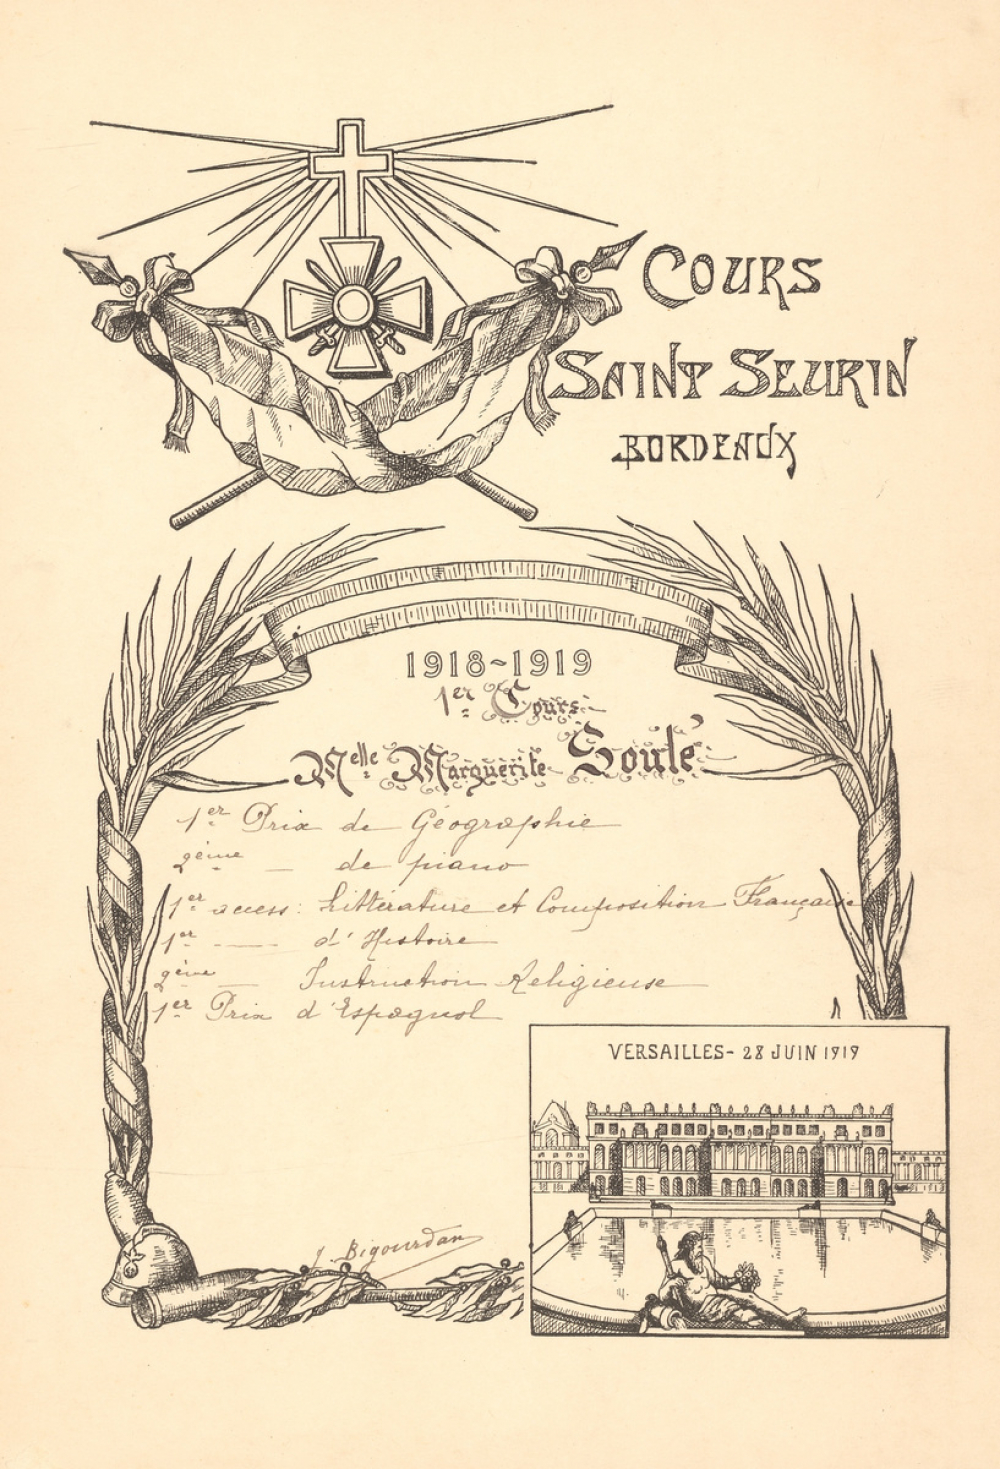 COURS
SAINT SEURIN
BORDEAUX
1918-1919
1er Cours
Melle Marguerite Soulé
1er Prix de Géographie
2ème — de piano
1er access: Littérature et Composition Française
1er — d'Histoire
2ème — Instruction Religieuse
1er Prix d'Espagnol
VERSAILLES - 28 JUIN 1919
J. Bigourdan